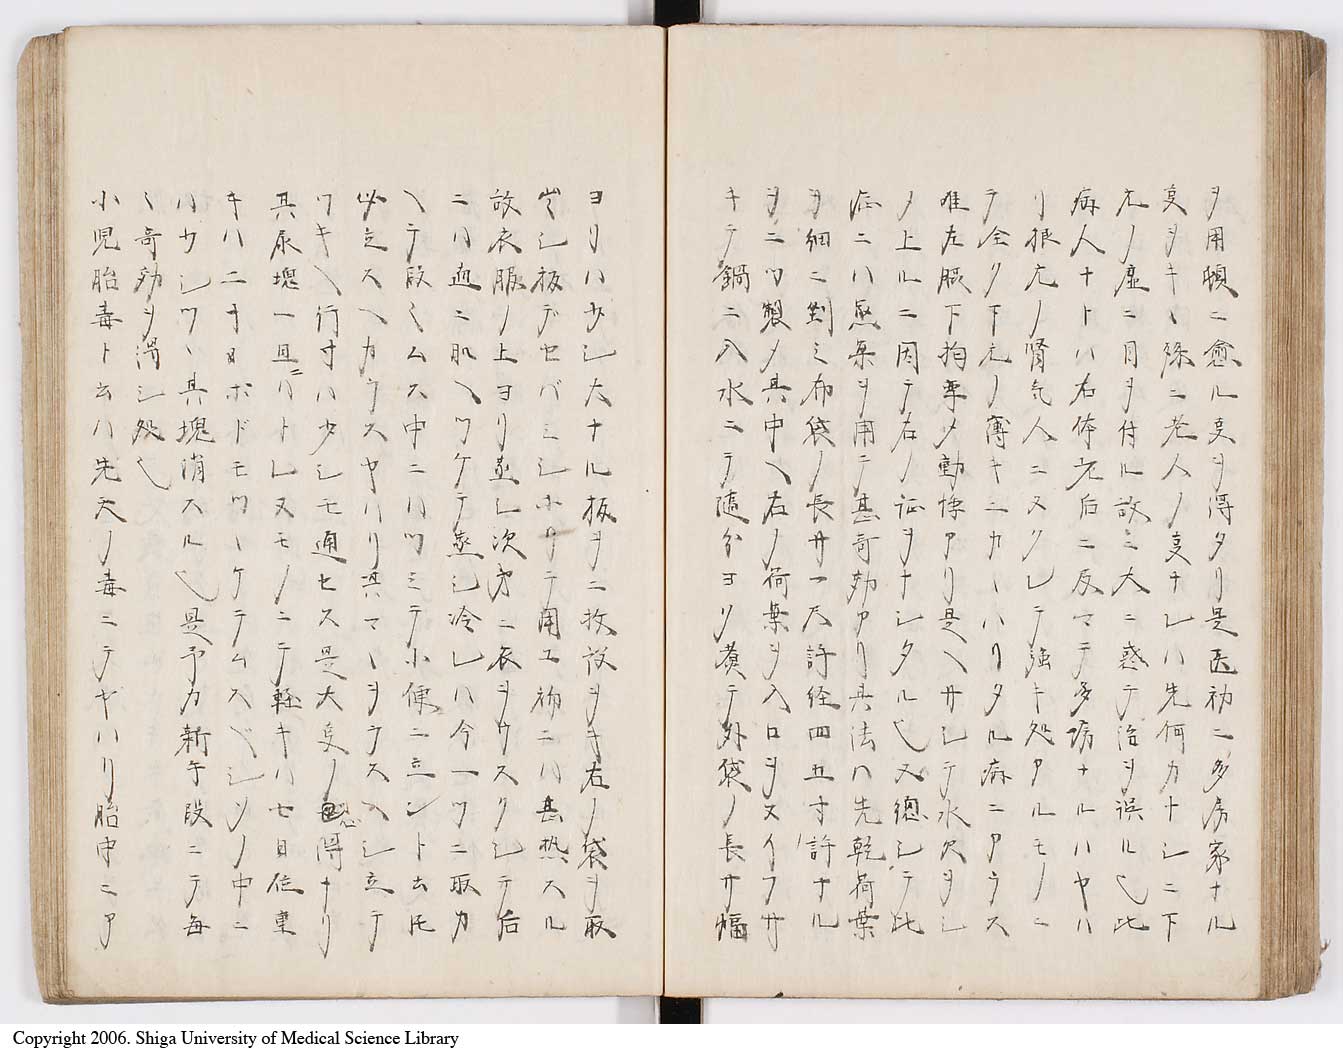 ヲ用頓ニ愈ル叓ヲ得タリ是医初ニ多房家ナル
叓ヲキヽ殊ニ老人ノ叓ナレハ先何カナシニ下
元ノ虚ニ目ヲ付ル故ニ大ニ惑テ治ヲ誤ル也此
病人ナトハ右体老后ニ反マテ多房ナルハヤハ
リ根元ノ腎気人ニスクレテ強キ処アルモノニ
テ全ク下元ノ薄キニカヽハリタル病ニアラス
唯左臍下拘挛メ動悸アリ是ヘサシテ水欠ヲシ
ノ上ルニ因テ右ノ証ヲナシタル也又總シテ此
症ニハ蒸薬ヲ用テ甚奇効アリ其法ハ先乾荷葉
ヲ細ニ剉ミ布袋ノ長サ一尺許経四五寸許ナル
ヲニツ製メ其中ヘ右ノ荷葉ヲ入口ヲヌイフサ
キテ鍋ニ入水ニテ随分ヨリ煮テ外袋ノ長サ幅
ヨリハ少シ大ナル板ヲニ枚設ヲキ右ノ袋ヲ取
出シ板デセバミシホリテ用ユ初ニハ甚熱スル
故衣服ノ上ヨリ蒸シ次第ニ衣ヲウスクシテ后
ニハ直ニ肌ヘツケテ蒸シ冷レハ今一ツニ取カ
ヘテ段〻ムス中ニハツミテ小便ニ立ント云氏
必立スヘカラスヤハリ其マヽヲラスヘシ立テ
ワキヘ行寸ハ少シモ通セス是大叓ノ心得ナリ
其尿塊一旦ニハトレヌモノニテ軽キハ七日位重
キハ二十日ホドモツヽケテムスベシソノ中ニ
ハサシツヽ其塊消スル也是予カ新午段ニテ毎
〻奇効ヲ得シ処也
小児胎毒ト云ハ先天ノ毒ニテヤハリ胎中ニア
Copyright 2006. Shiga University of Medical Science Library